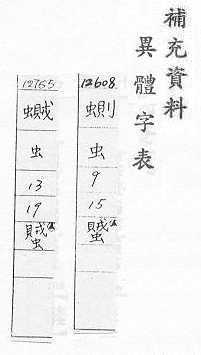 補充資料
異體字表
12608
蝍
虫
9
15
12765
虫
13
19